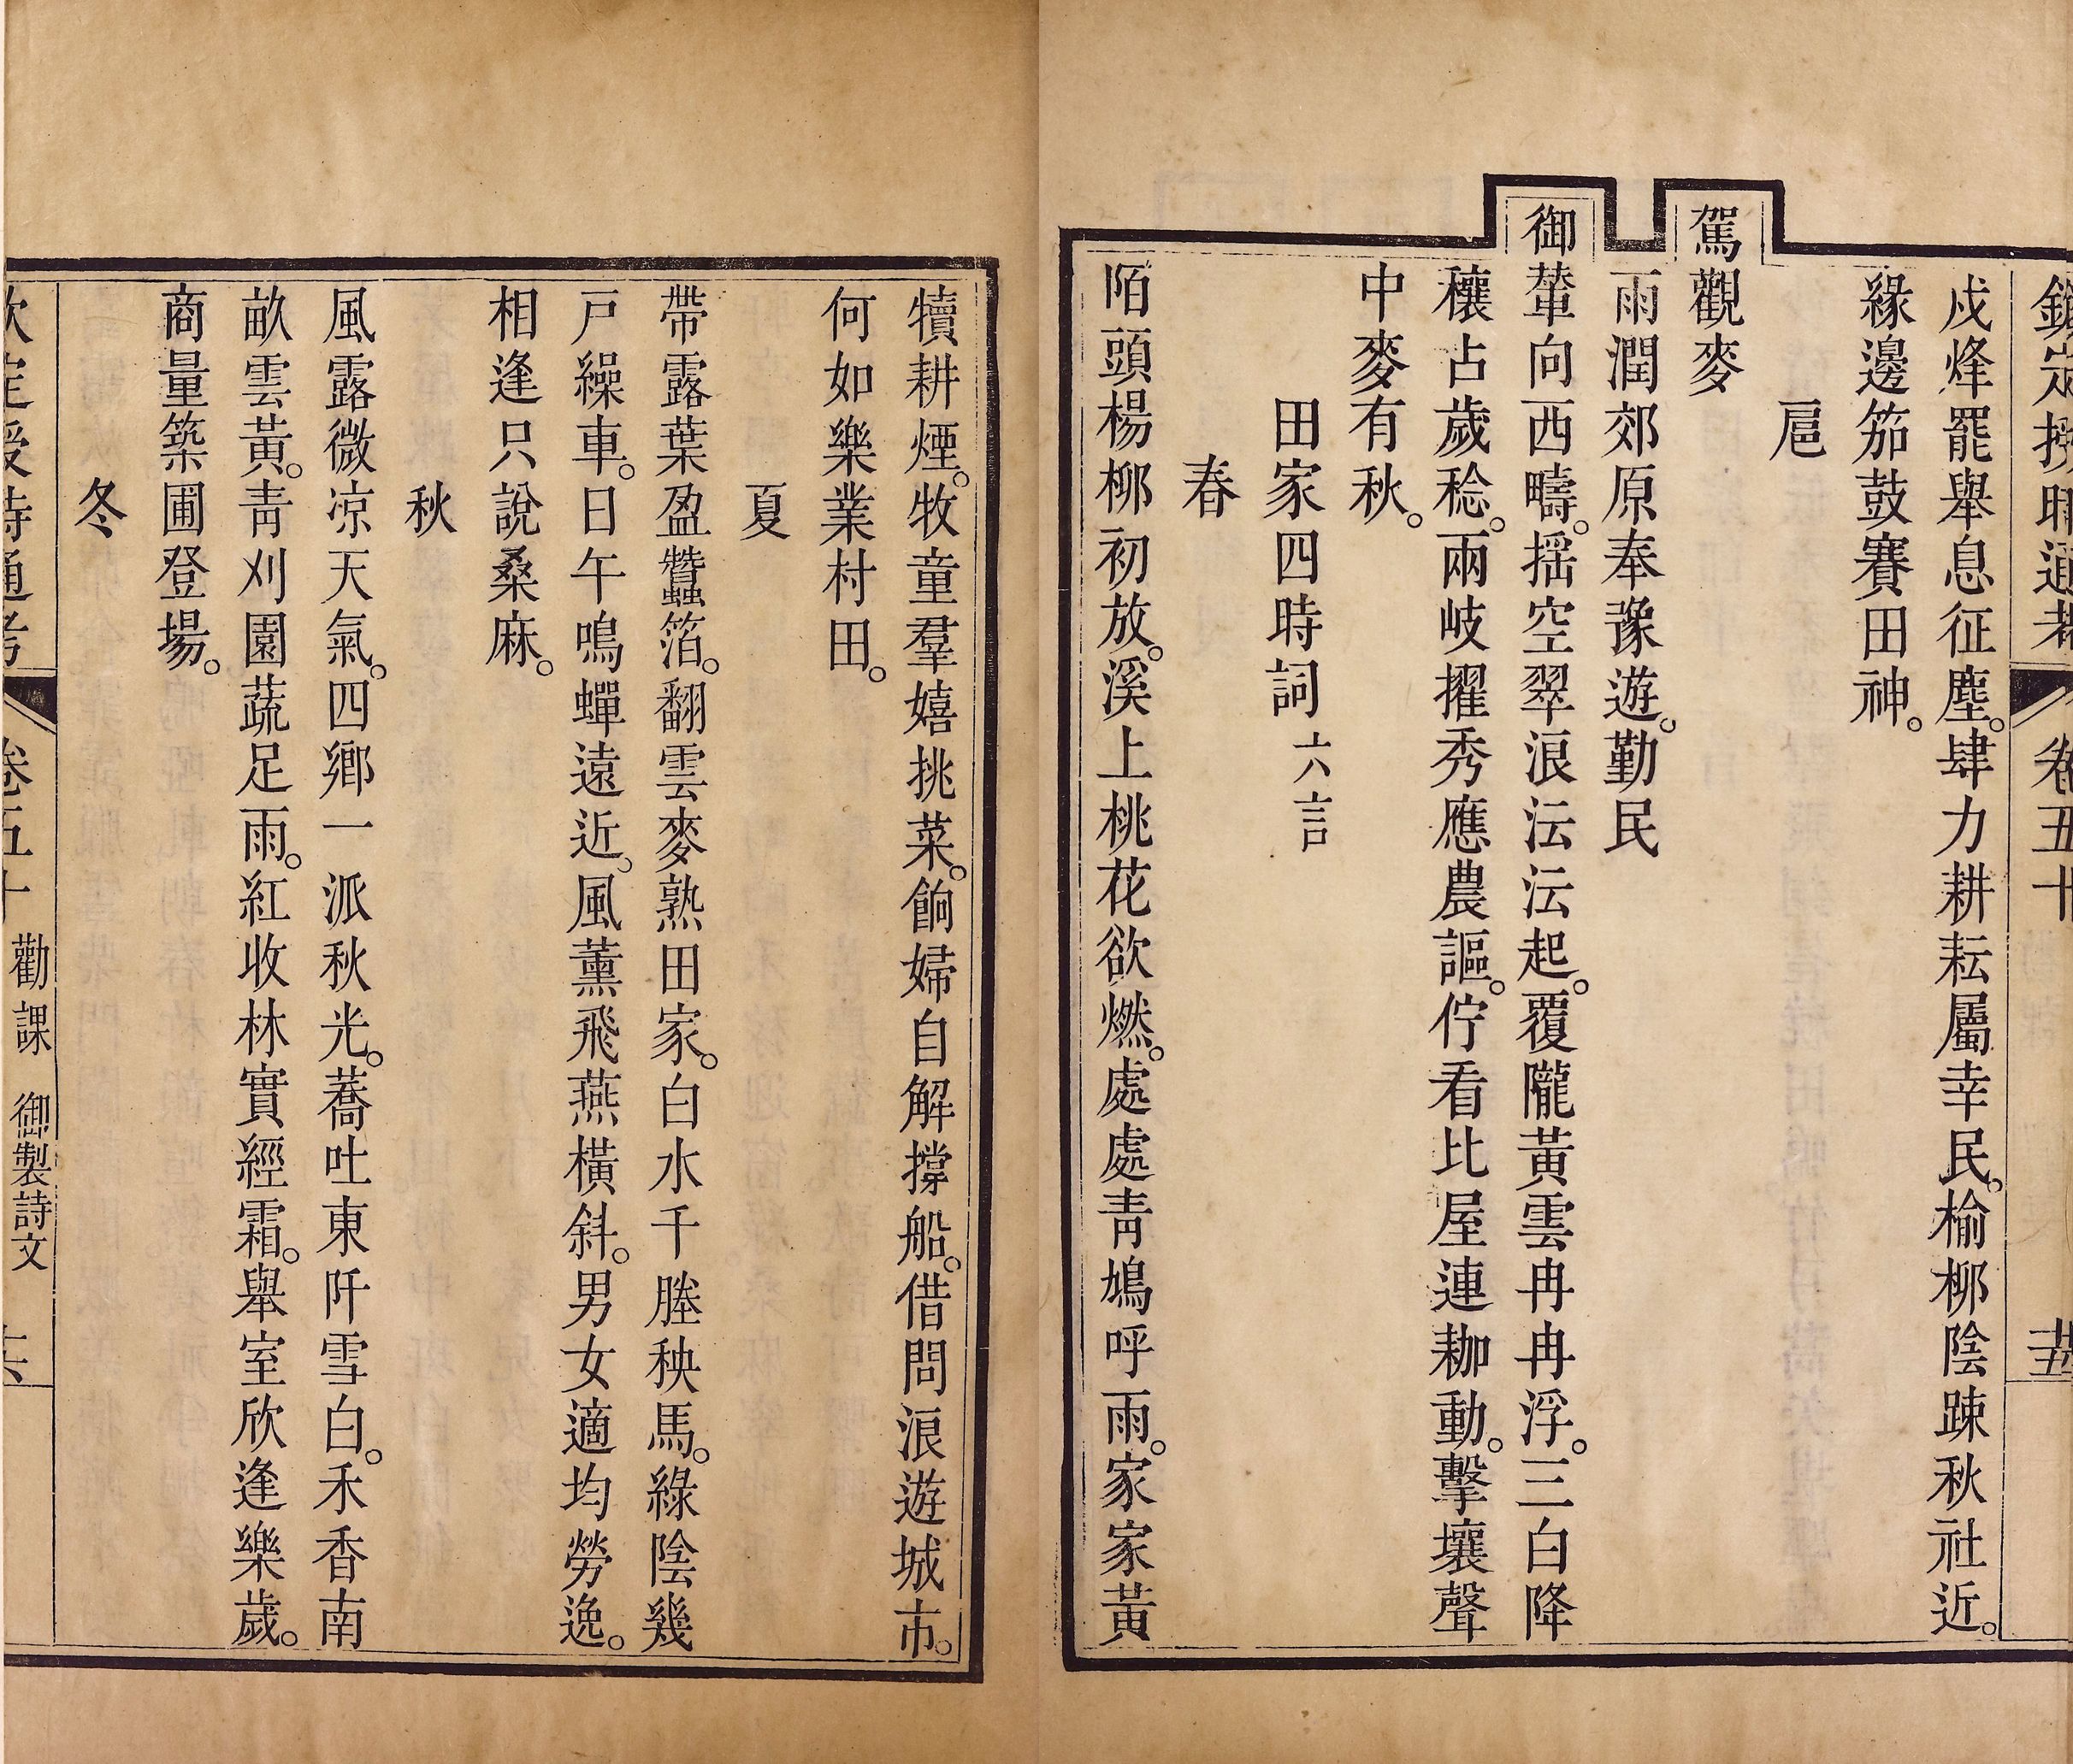 欽定授時通考 卷五十
戍烽罷舉息征塵。肆力耕耘屬幸民。榆柳陰踈秋社近。
緣邊笳鼓賽田神。
扈
駕觀麥
雨潤郊原奉豫遊。勤民
御輦向西疇。搖空翠浪沄沄起。覆隴黃雲冉冉浮。三白降
穰占歲稔。兩岐擢秀應農謳。佇看比屋連耞動。擊壤聲
中麥有秋。
田家四時詞 六言
春
陌頭楊柳初放。溪上桃花欲燃。處處青鳩呼雨。家家黃
犢耕煙。牧童羣嬉挑菜。餉婦自解撐船。借問浪遊城市。
何如樂業村田。
夏
帶露葉盈蠶箔。翻雲麥熟田家。白水千塍秧馬。綠陰幾
戶繰車。日午鳴蟬遠近。風薰飛燕橫斜。男女適均勞逸。
相逢只說桑麻。
秋
風露微凉天氣。四鄉一派秋光。蕎吐東阡雪白。禾香南
畝雲黃。青刈園蔬足雨。紅收林實經霜。舉室欣逢樂歲。
商量築圃登場。
冬
欽定授時通考 卷五十 勸課 御製詩文